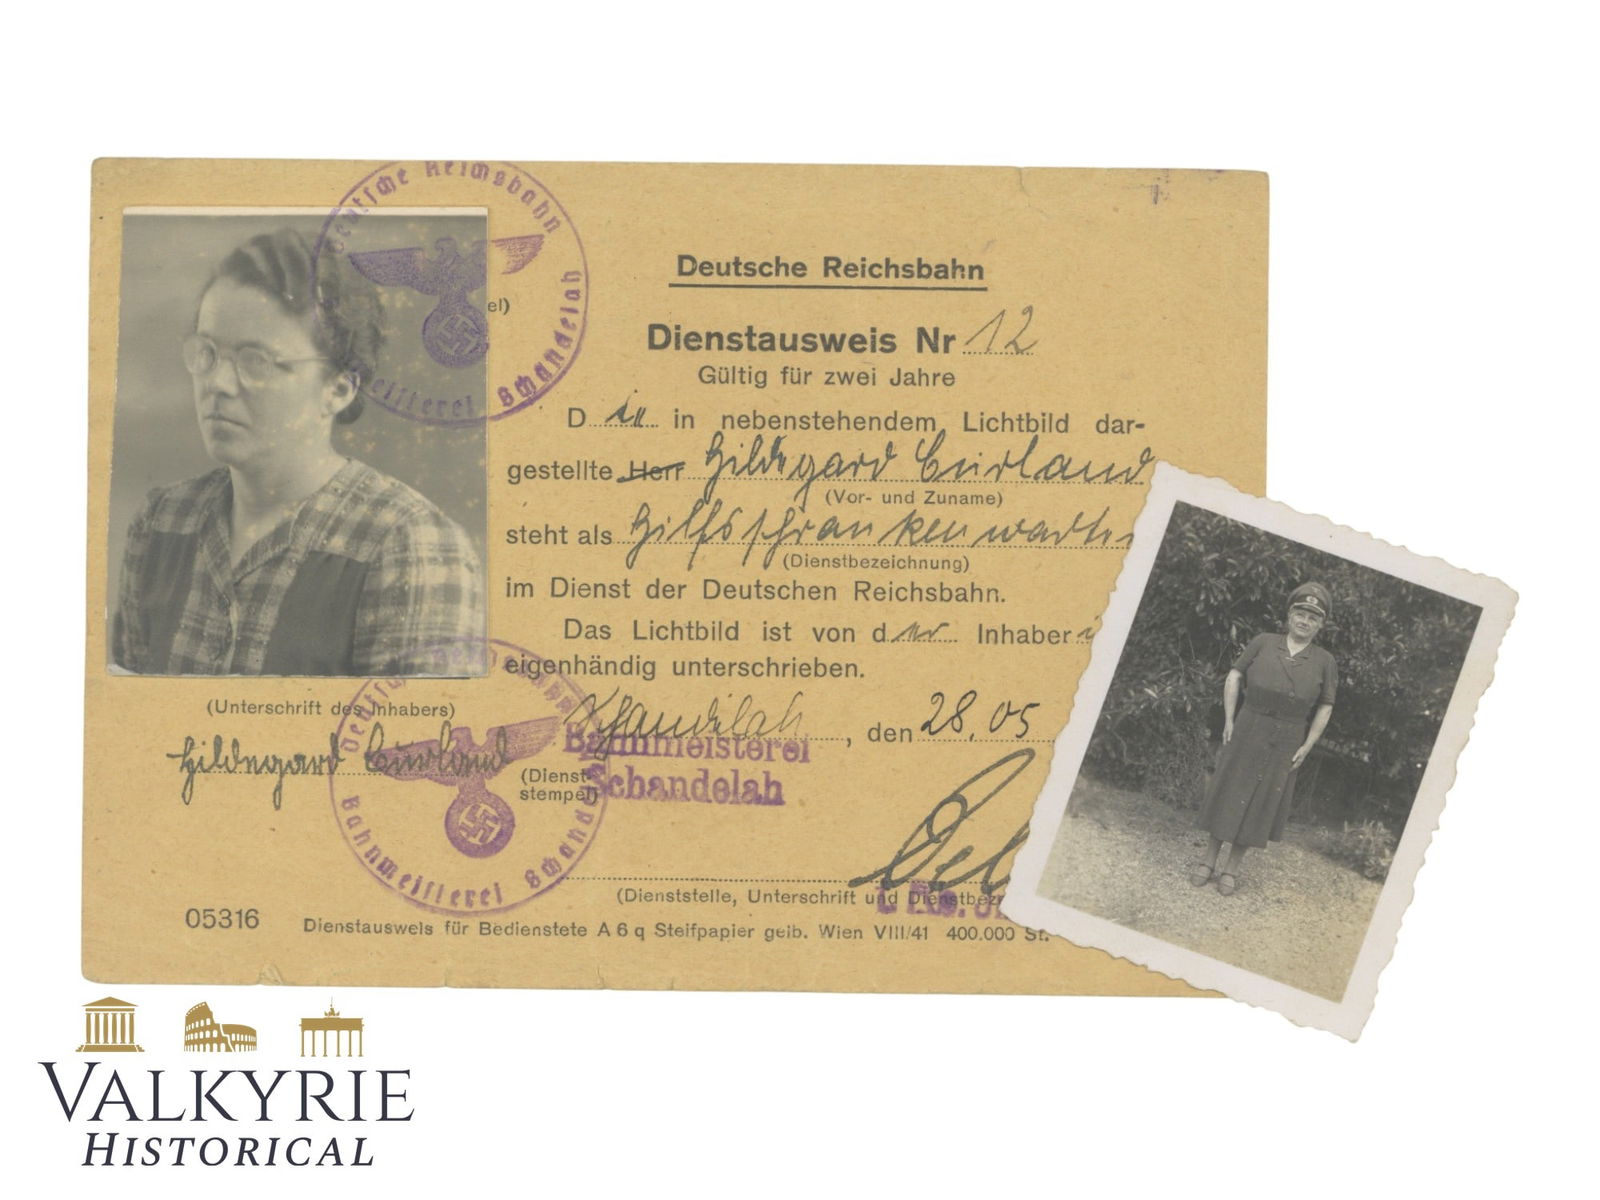 Deutsche Reichsbahn
Bahnmeisterei Schandelah
el)
Deutsche Reichsbahn
Dienstausweis Nr 12
Gültig für zwei Jahre
Die in nebenstehendem Lichtbild dar-
gestellte Herr Hildegard Curland
(Vor- und Zuname)
steht als Hilfsschrankenwärterin
(Dienstbezeichnung)
im Dienst der Deutschen Reichsbahn.
Das Lichtbild ist von der Inhaberi
eigenhändig unterschrieben.
(Unterschrift des Inhabers)
Hildegard Curland
(Dienst-
stempel)
Deutsche Reichsbahn
Bahnmeisterei Schandelah
Schandelah, den 28.05
Bahnmeisterei
Schandelah
(Dienststelle, Unterschrift und Dienstbez
05316 Dienstausweis für Bedienstete A 6 q Steifpapier gelb. Wien VIII/41 400.000 St.
VALKYRIE
HISTORICAL